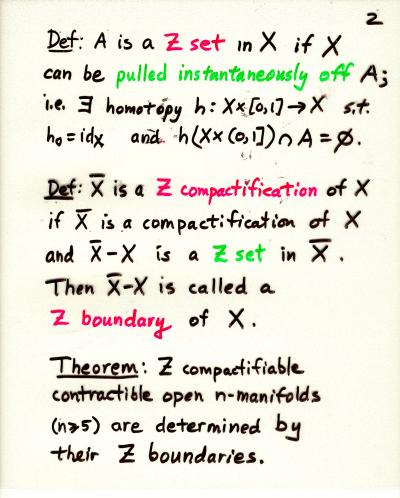 2
Def: A is a Z set in X if X
can be pulled instantaneously off A;
i.e. ∃ homotopy h: X×[0,1]→X s.t.
h₀=idₓ and h(X×(0,1])∩A=∅.
Def: X̅ is a Z compactification of X
if X̅ is a compactification of X
and X̅-X is a Z set in X̅.
Then X̅-X is called a
Z boundary of X.
Theorem: Z compactifiable
contractible open n-manifolds
(n≥5) are determined by
their Z boundaries.